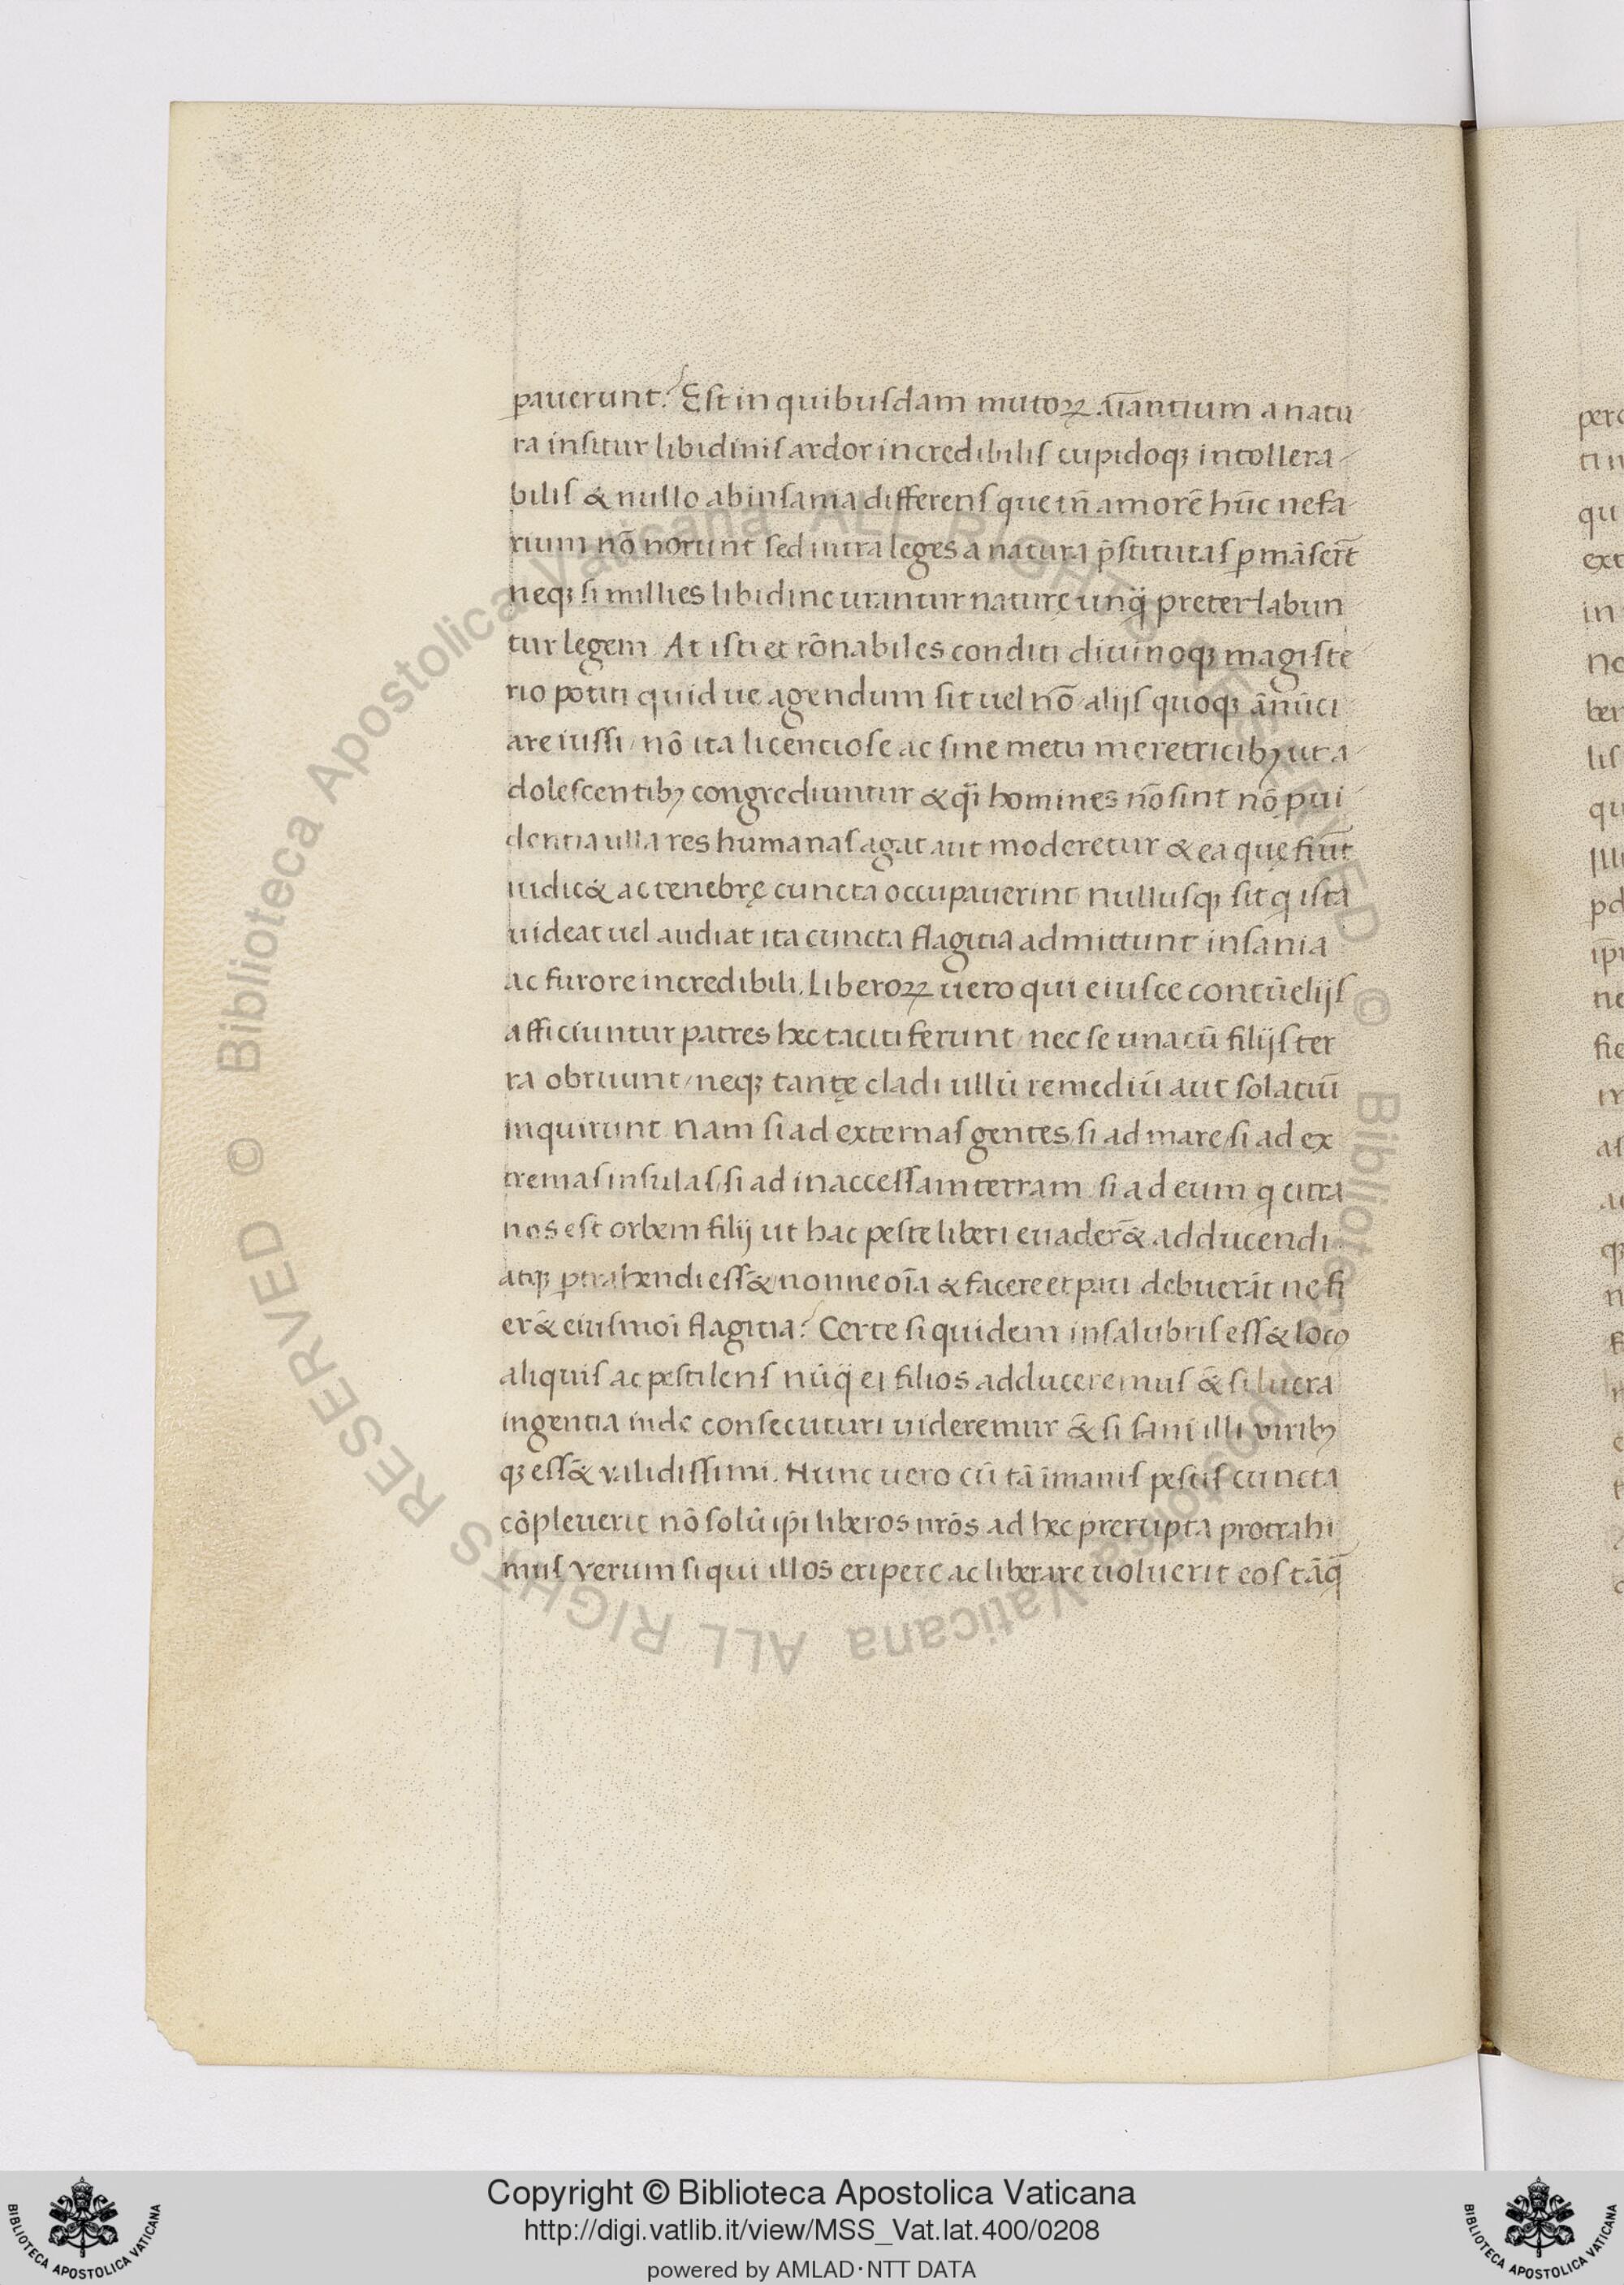 pauerunt? Est in quibusdam mutoꝝ aīantium a natu
ra insitur libidinis ardor incredibilis cupidoqꝫ intollera
bilis & nullo ab insania differens que tn̄ amorē hūc nefa
rium nō norunt sed intra leges a natura p̄stitutas ꝑmāsert̄
neqꝫ si millies libidine urantur naturę unq̄ preterlabun
tur legem. At isti et rōnabiles conditi diuinoqꝫ magiste
rio potiti quid ue agendum sit uel nō alijs quoqꝫ ānūci
are iussi / nō ita licenciose ac sine metu meretricibꝫ ut a
dolescentibꝫ congrediuntur & q̄i homines nō sint nō ꝓui
dentia ulla res humanas agat aut moderetur & ea quę fiūt
iudic& ac tenebrę cuncta occupauerint nullusqꝫ sit q ista
uideat uel audiat ita cuncta flagitia admittunt insania
ac furore incredibili. Liberoꝝ uero qui eiusce contūelijs
afficiuntur patres hec taciti ferunt / nec se una cū filijs ter
ra obruunt / neqꝫ tantę cladi ullū remediū aut solatiū
inquirunt Nam si ad externas gentes / si ad mare / si ad ex
tremas insulas / si ad inaccessam terram si ad eum q citra
nos est orbem filij ut hac peste liberi euader& adducendi
atqꝫ ꝑtrahendi ess& nonne oīa & facere et pati debuerāt ne fi
er& eiusmōi flagitia? Certe si quidem insalubris ess& locꝰ
aliquis ac pestilens nūq̄ ei filios adduceremus &si lucra
ingentia inde consecuturi uideremur &si sani illi uiribꝫ
qꝫ ess& validissimi. Nunc uero cū tā īmanis pestis cuncta
cōpleuerit nō solū ip̄i liberos nrōs ad hec prerupta protrahi
mus verum si qui illos eripere ac liberare uoluerit eos tāq̄
Copyright © Biblioteca Apostolica Vaticana
http://digi.vatlib.it/view/MSS_Vat.lat.400/0208
powered by AMLAD·NTT DATA